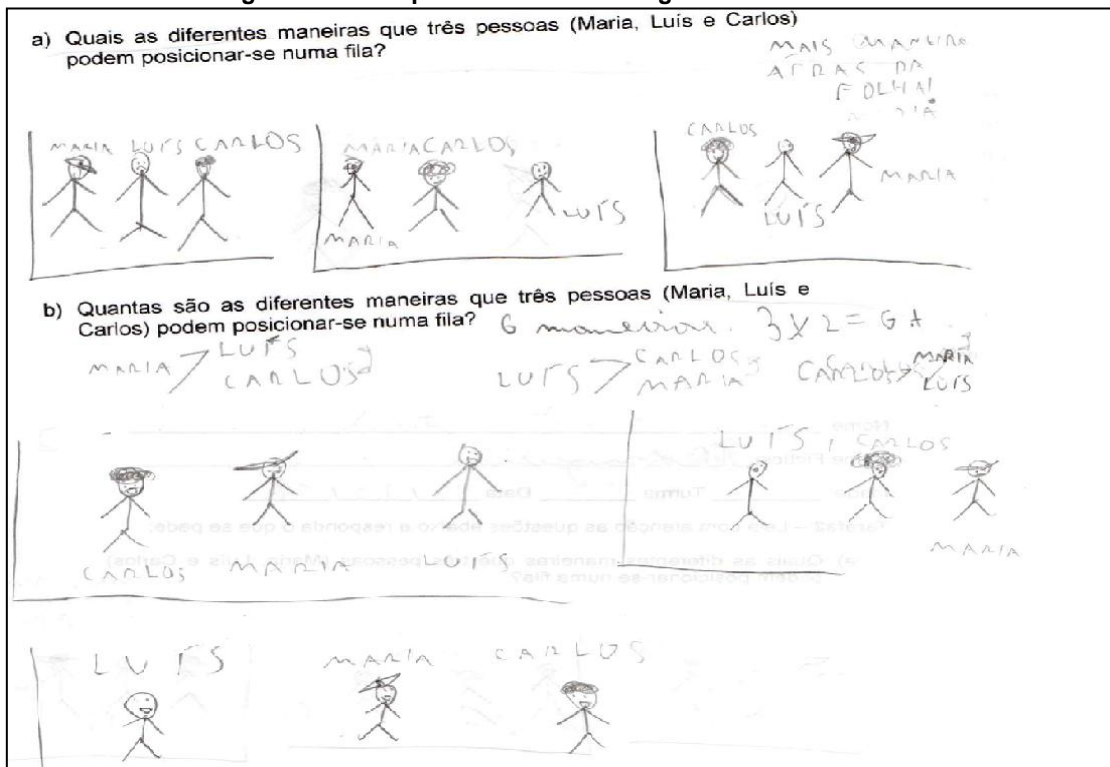 a) Quais as diferentes maneiras que três pessoas (Maria, Luís e Carlos)
podem posicionar-se numa fila?
MAIS MANEIRA
ATRAS DA
FOLHA!
MARIA LUÍS CARLOS
MARIA CARLOS
LUÍS
MARIA
CARLOS
LUÍS
MARIA
b) Quantas são as diferentes maneiras que três pessoas (Maria, Luís e
Carlos) podem posicionar-se numa fila? 6 maneiras. 3 X 2 = 6
MARIA LUÍS
CARLOS
LUÍS CARLOS
MARIA
CARLOS MARIA
LUÍS
CARLOS MARIA LUÍS
LUÍS CARLOS
MARIA
LUÍS MARIA CARLOS